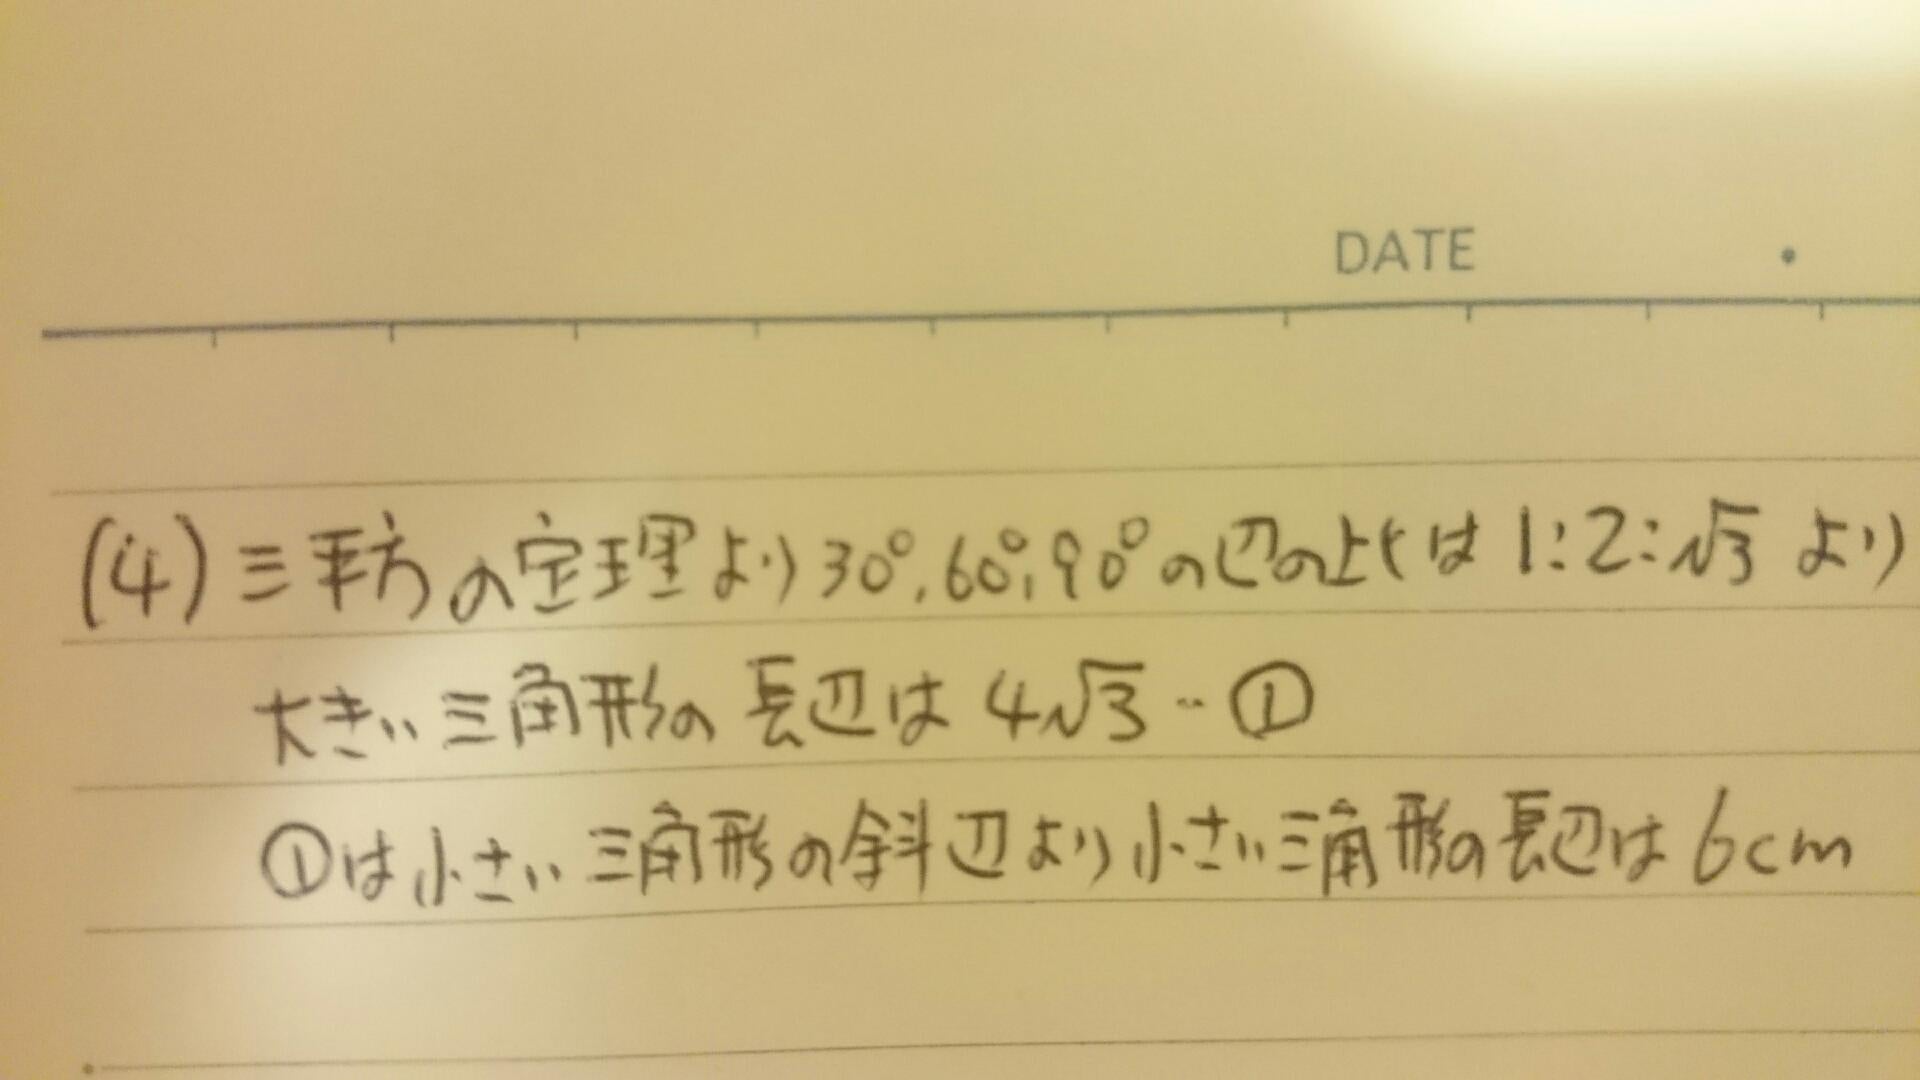 DATE ・
(4) 三平方の定理より30°,60°,90°の辺の比は 1:2:√3 より
大きい三角形の長辺は 4√3 ‥①
①は小さい三角形の斜辺より小さい三角形の長辺は 6cm